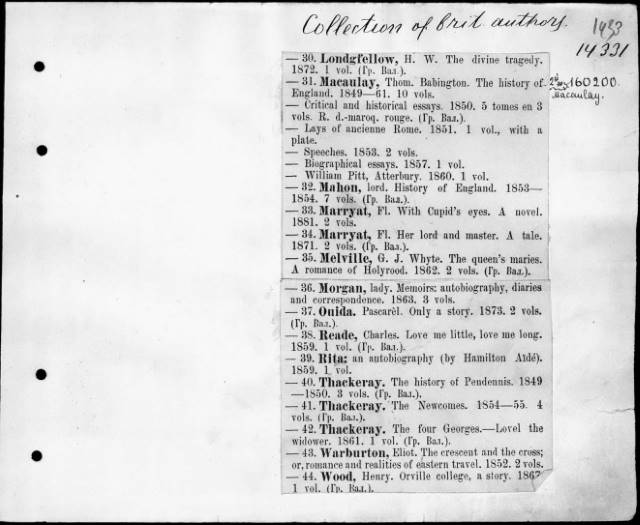 Collection of brit. authors.
1433
14331
— 30. Londgfellow, H. W. The divine tragedy.
1872. 1 vol. (Гр. Вал.).
— 31. Macaulay, Thom. Babington. The history of
England. 1849—61. 10 vols.
160200.
Macaulay.
— Critical and historical essays. 1850. 5 tomes en 3
vols. R. d.-maroq. rouge. (Гр. Вал.).
— Lays of ancienne Rome. 1851. 1 vol., with a
plate.
— Speeches. 1853. 2 vols.
— Biographical essays. 1857. 1 vol.
— William Pitt, Atterbury. 1860. 1 vol.
— 32. Mahon, lord. History of England. 1853—
1854. 7 vols. (Гр. Вал.).
— 33. Marryat, Fl. With Cupid's eyes. A novel.
1881. 2 vols.
— 34. Marryat, Fl. Her lord and master. A tale.
1871. 2 vols. (Гр. Вал.).
— 35. Melville, G. J. Whyte. The queen's maries.
A romance of Holyrood. 1862. 2 vols. (Гр. Вал.).
— 36. Morgan, lady. Memoirs: autobiography, diaries
and correspondence. 1863. 3 vols.
— 37. Ouida. Pascarèl. Only a story. 1873. 2 vols.
(Гр. Вал.).
— 38. Reade, Charles. Love me little, love me long.
1859. 1 vol. (Гр. Вал.).
— 39. Rita: an autobiography (by Hamilton Aïdé).
1859. 1 vol.
— 40. Thackeray. The history of Pendennis. 1849
—1850. 3 vols. (Гр. Вал.).
— 41. Thackeray. The Newcomes. 1854—55. 4
vols. (Гр. Вал.).
— 42. Thackeray. The four Georges.—Lovel the
widower. 1861. 1 vol. (Гр. Вал.).
— 43. Warburton, Eliot. The crescent and the cross;
or, romance and realities of eastern travel. 1852. 2 vols.
— 44. Wood, Henry. Orville college, a story. 186
1 vol. (Гр. Вал.).